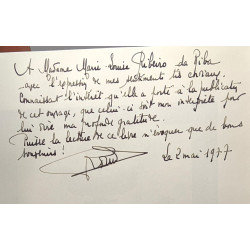 A Madame Marie Louise Ribeiro da Riba
avec l'expression de mes sentiments très choisis.
Connaissant l'intérêt qu'elle a porté à la publication
de cet ouvrage, que celui-ci soit mon interprète pour
lui dire ma profonde gratitude.
Puisse la lecture de ce livre n'évoquer que de bons
souvenirs !
Le 2 mai 1977